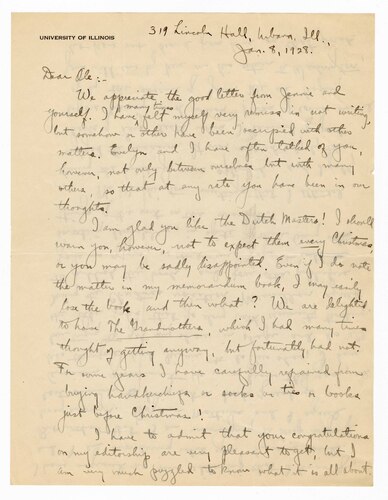 UNIVERSITY OF ILLINOIS
319 Lincoln Hall, Urbana, Ill.,
Jan. 8, 1928.
Dear Ole:-
We appreciate the good letters from Jennie and
yourself. I have many times felt myself very remiss in not writing,
but somehow or other have been occupied with other
matters. Evelyn and I have often talked of you,
however, not only between ourselves but with many
others, so that at any rate you have been in our
thoughts.
I am glad you like the Dutch Masters! I should
warn you, however, not to expect them every Christmas
or you may be sadly disappointed. Even if I do note
the matter in my memorandum book, I may easily
lose the book and then what? We are delighted
to have The Grandmothers, which I had many times
thought of getting anyway, but fortunately had not.
For some years I have carefully refrained from
buying handkerchiefs or socks or ties or books
just before Christmas!
I have to admit that your congratulations
on my editorship are very pleasant to get, but I
am very much puzzled to know what it is all about.